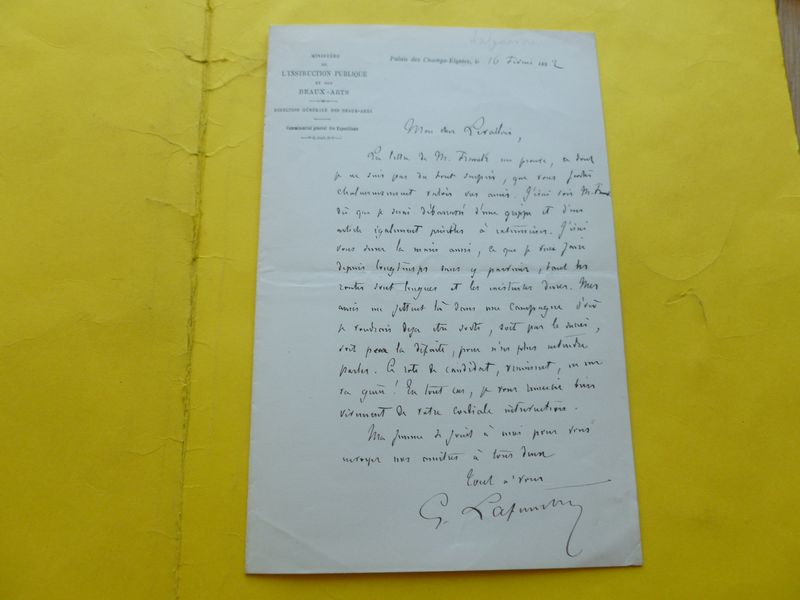 MINISTÈRE
DE
L'INSTRUCTION PUBLIQUE
ET DES
BEAUX-ARTS
DIRECTION GÉNÉRALE DES BEAUX-ARTS
Commissariat général des Expositions
Palais des Champs-Elysées, le 16 Février 1882
Mon cher Levallois,
La lettre de M. Franck me prouve, ce dont
je ne suis pas du tout surpris, que vous
chaleureusement vos amis. J'irai voir M. Franck
dès que je serai débarrassé d'une grippe et d'un
article également pénibles à . J'irai
vous serrer la main aussi, ce que je veux faire
depuis longtemps sans y parvenir, tant les
routes sont longues et les dures. Mes
amis me jettent là dans une campagne d'où
je voudrais déjà être sorti, soit par le succès,
soit par la défaite, pour n'en plus entendre
parler. Ce rôle de candidat, vraiment, ne me
va guère! En tout cas, je vous remercie bien
vivement de votre cordiale intervention.
Ma femme se joint à moi pour vous
envoyer nos amitiés à tous deux
Tout à vous
G. Lafenestre